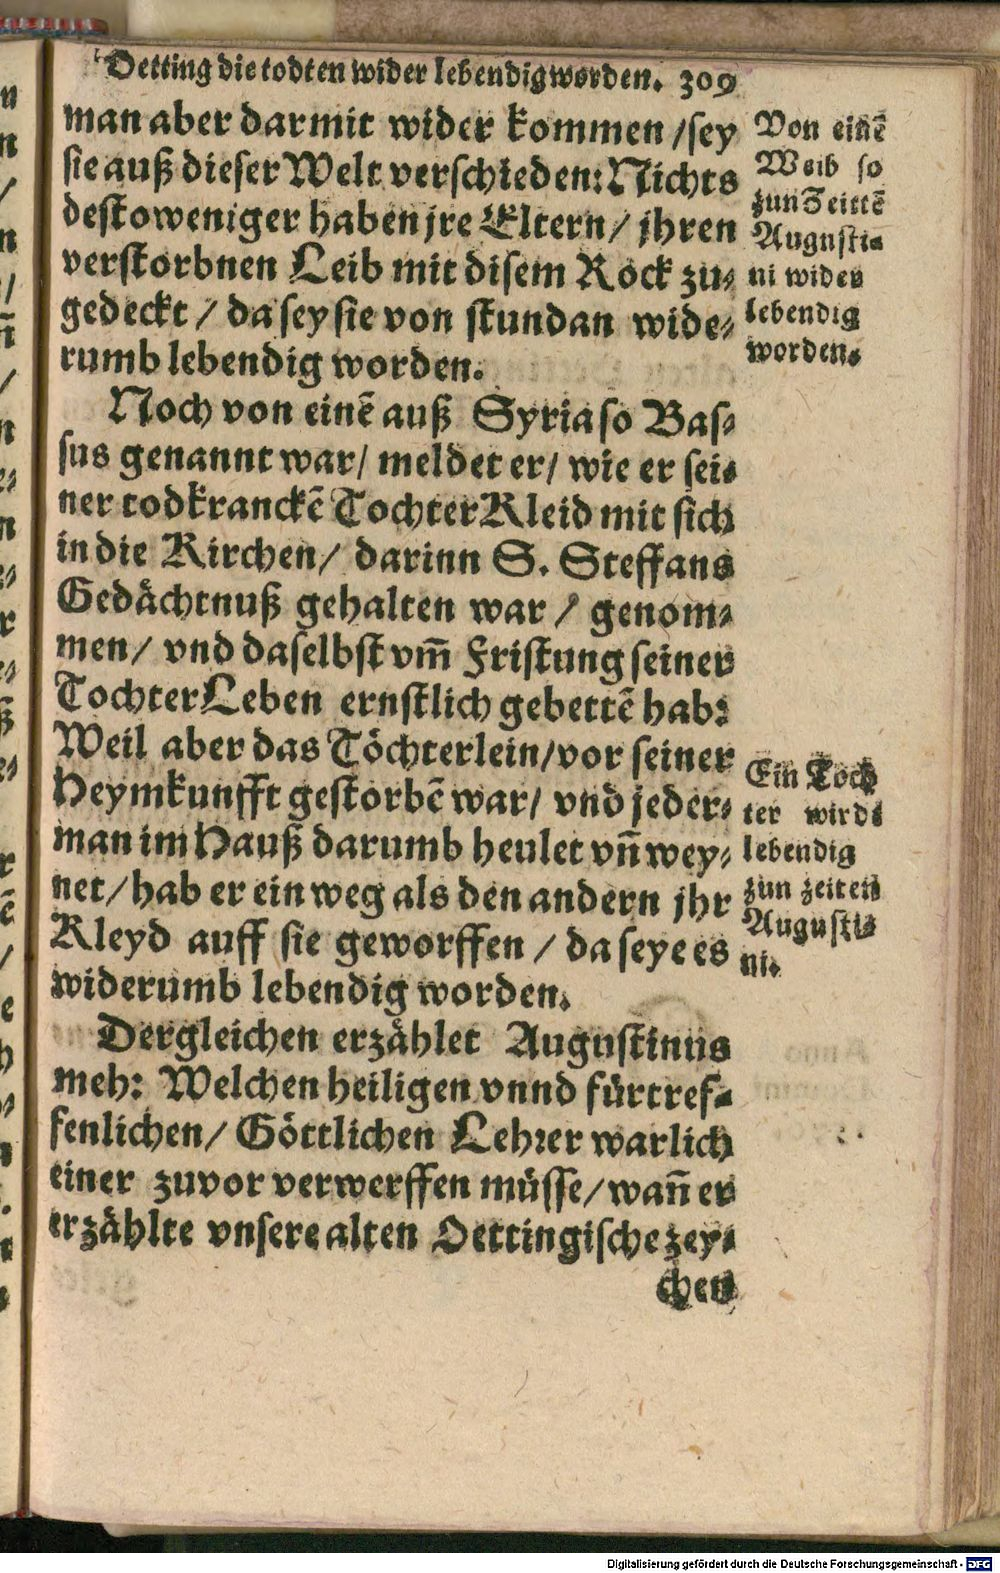 Oetting die todten wider lebendig worden. 309
man aber darmit wider kommen / sey
sie auß dieser Welt verschieden: Nichts
destoweniger haben jre Eltern / jhren
verstorbnen Leib mit disem Rock zu-
gedeckt / da sey sie von stundan wide-
rumb lebendig worden.
Von einē
Weib so
zun Zeittē
Augusti-
ni wider
lebendig
worden.
Noch von einē auß Syria so Bas-
sus genannt war / meldet er / wie er sei-
ner todkranckē Tochter Kleid mit sich
in die Kirchen / darinn S. Steffans
Gedächtnuß gehalten war / genom-
men / vnd daselbst vm̄ Fristung seiner
Tochter Leben ernstlich gebettē hab:
Weil aber das Töchterlein / vor seiner
Heymkunfft gestorbē war / vnd jeder-
man im Hauß darumb heulet vn̄ wey-
net / hab er ein weg als den andern jhr
Kleyd auff sie geworffen / da seye es
widerumb lebendig worden.
Ein Toch
ter wirdt
lebendig
zun zeiten
Augusti-
ni.
Dergleichen erzählet Augustinus
meh: Welchen heiligen vnnd fürtref-
fenlichen / Göttlichen Lehrer warlich
einer zuvor verwerffen müsse / wan̄ er
erzählte vnsere alten Oettingische zey-
chen
Digitalisierung gefördert durch die Deutsche Forschungsgemeinschaft - DFG